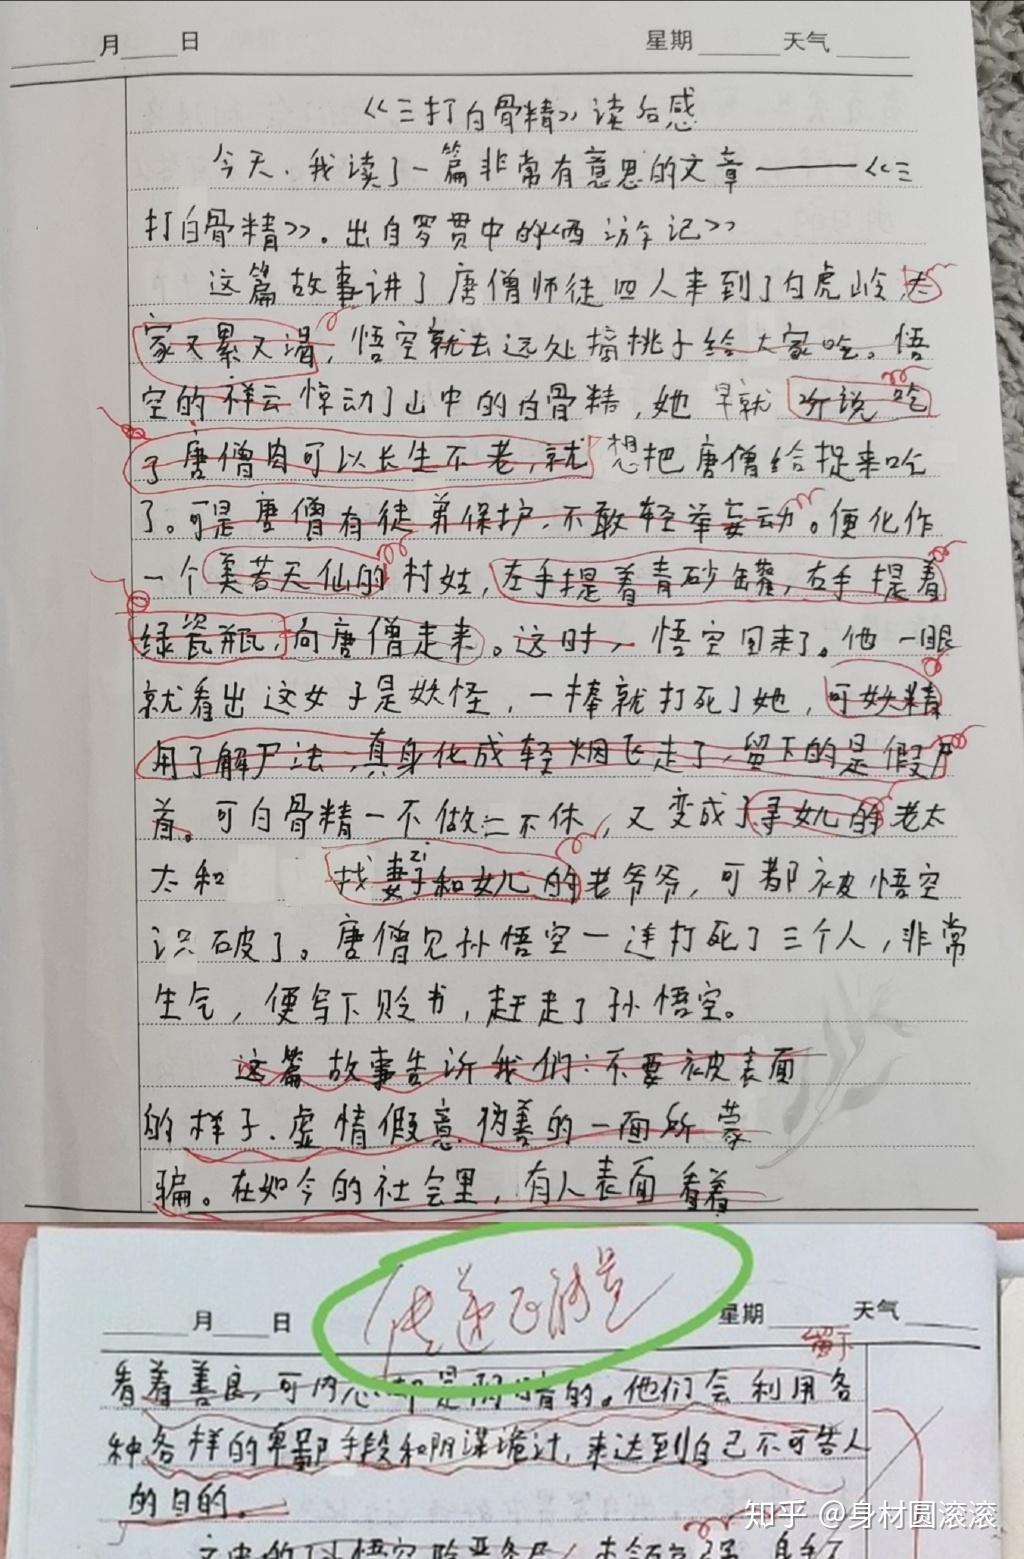 月 日 星期 天气
《三打白骨精》读后感
今天，我读了一篇非常有意思的文章——《三
打白骨精》。出自罗贯中的《西游记》
这篇故事讲了唐僧师徒四人来到了白虎岭大
家又累又渴，悟空就去远处摘桃子给大家吃。悟
空的祥云惊动了山中的白骨精，她早就听说吃
了唐僧肉可以长生不老，就想把唐僧给捉来吃
了。可是唐僧有徒弟保护，不敢轻举妄动。便化作
一个美若天仙的村姑，左手提着青砂罐，右手提着
绿瓷瓶，向唐僧走来。这时，悟空回来了。他一眼
就看出这女子是妖怪，一棒就打死了她，可妖精
用了解尸法，真身化成轻烟飞走了，留下的是假尸
首。可白骨精一不做二不休，又变成了寻女儿的老太
太和 找妻子zi和女儿的老爷爷，可都被悟空
识破了。唐僧见孙悟空一连打死了三个人，非常
生气，便写下贬书，赶走了孙悟空。
这篇故事告诉我们：不要被表面
的样子、虚情假意、伪善的一面所蒙
骗。在如今的社会里，有人表面看着
传递正能量
月 日 星期 天气
留下
看着善良，可内心却是阴暗的。他们会利用各
种各样的卑鄙手段和阴谋诡计，来达到自己不可告人
的目的。
知乎 @身材圆滚滚